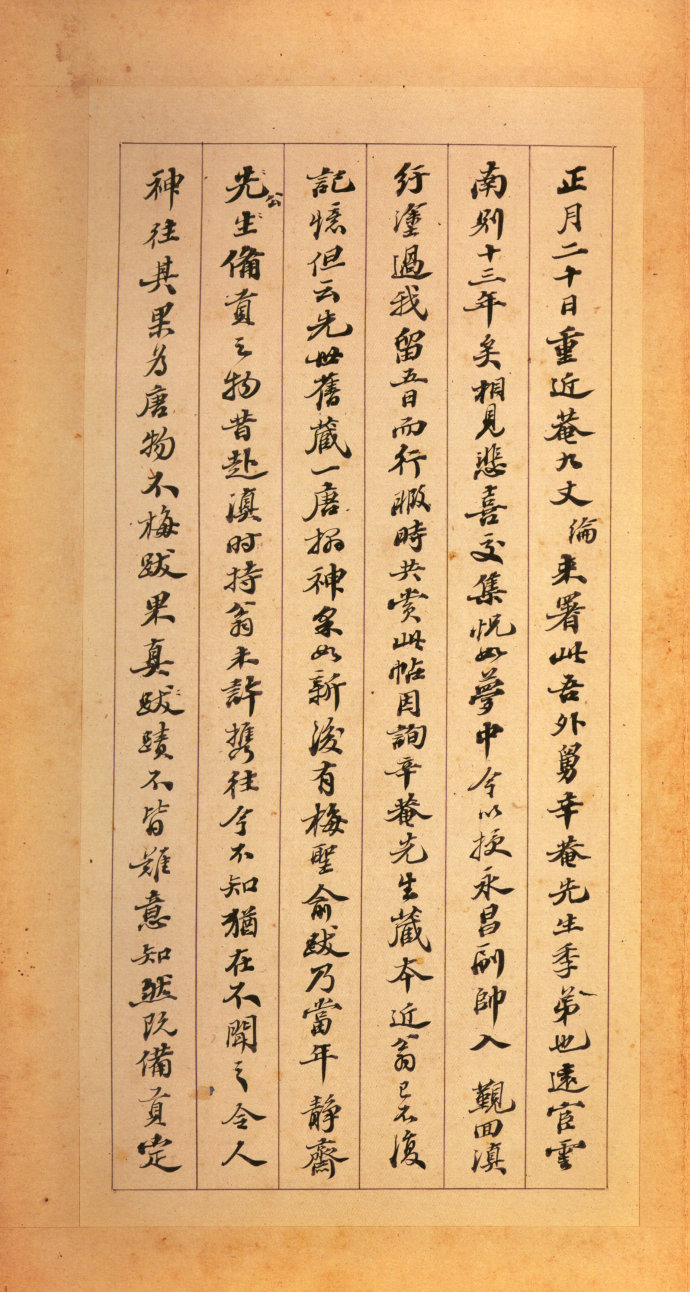 正月二十日重近菴九丈綸來署此吾外舅幸菴先生季弟也遠宦雲
南別十三年矣相見悲喜交集怳如夢中今以授永昌副帥入覲回滇
行塗過我留五日而行暇時共賞此帖因詢幸菴先生藏本近翁已不復
記憶但云先世舊藏一唐搨神采如新後有梅聖俞跋乃當年靜齋
先公生備貢之物昔赴滇時持翁未許攜往今不知猶在不聞之令人
神往其果為唐物不梅跋果真跋蹟不皆難意知然既備貢定